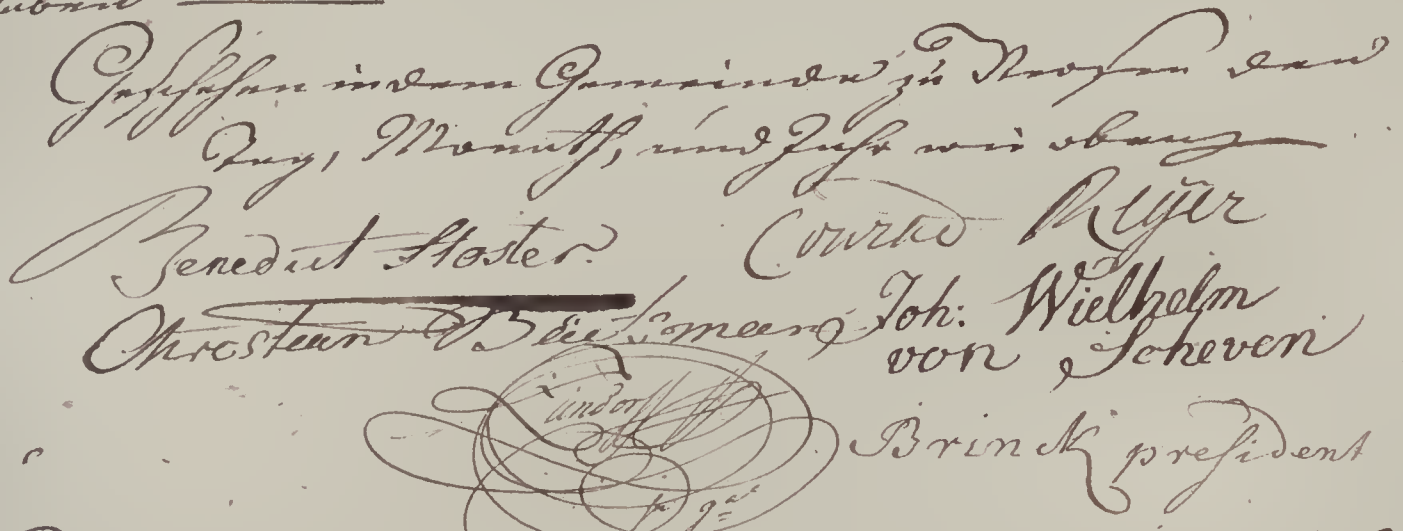 Geschehen in dem Gemeinde zu den
Tag, Monath, und Jahr wie oben
Benedict Closter Conrad Reÿer
Christian Joh: Wielhelm
von Scheven
Brinck president